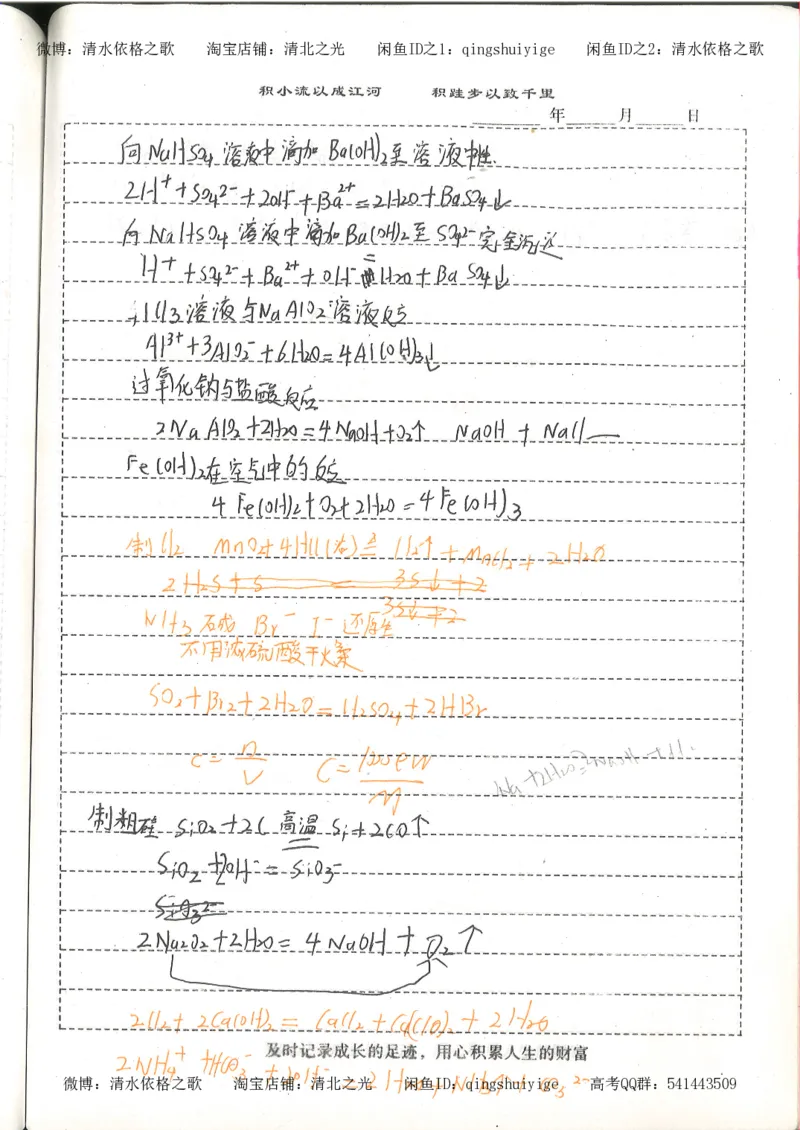 微博：清水依格之歌 淘宝店铺：清北之光 闲鱼ID之1：qingshuiyige 闲鱼ID之2：清水依格之歌
积小流以成江河 积跬步以致千里
年 月 日
向NaHSO4溶液中滴加Ba(OH)2至溶液中性
2H⁺+SO4²⁻+2OH⁻+Ba²⁺=2H2O+BaSO4↓
向NaHSO4溶液中滴加Ba(OH)2至SO4²⁻完全沉淀
H⁺+SO4²⁻+Ba²⁺+OH⁻=H2O+BaSO4↓
lCl3溶液与NaAlO2溶液反应
Al³⁺+3AlO2⁻+6H2O=4Al(OH)3↓
过氧化钠与盐酸反应
2NaAlO2+2H2O=4NaOH+O2↑ NaOH+NaCl
Fe(OH)2在空气中的反应
4Fe(OH)2+O2+2H2O=4Fe(OH)3
制Cl2 MnO2+4HCl(浓)≜Cl2↑+MnCl2+2H2O
2H2S+S = 3S↓+2
3S↓+2
NH3 Br⁻ I⁻ 还原性
不用浓硫酸干燥
SO2+Br2+2H2O=H2SO4+2HBr
c=n/V C=1000ρW/M
Na+2H2O=2NaOH+H
制粗硅 SiO2+2C 高温 Si+2CO↑
SiO2+2OH⁻=SiO3⁻
SiO3²⁻
2Na2O2+2H2O=4NaOH+O2↑
2Cl2+2Ca(OH)2=CaCl2+Ca(ClO)2+2H2O
及时记录成长的足迹，用心积累人生的财富
2NH4⁺+HCO3⁻+
微博：清水依格之歌 淘宝店铺：清北之光 闲鱼ID：qingshuiyige 高考QQ群：541443509